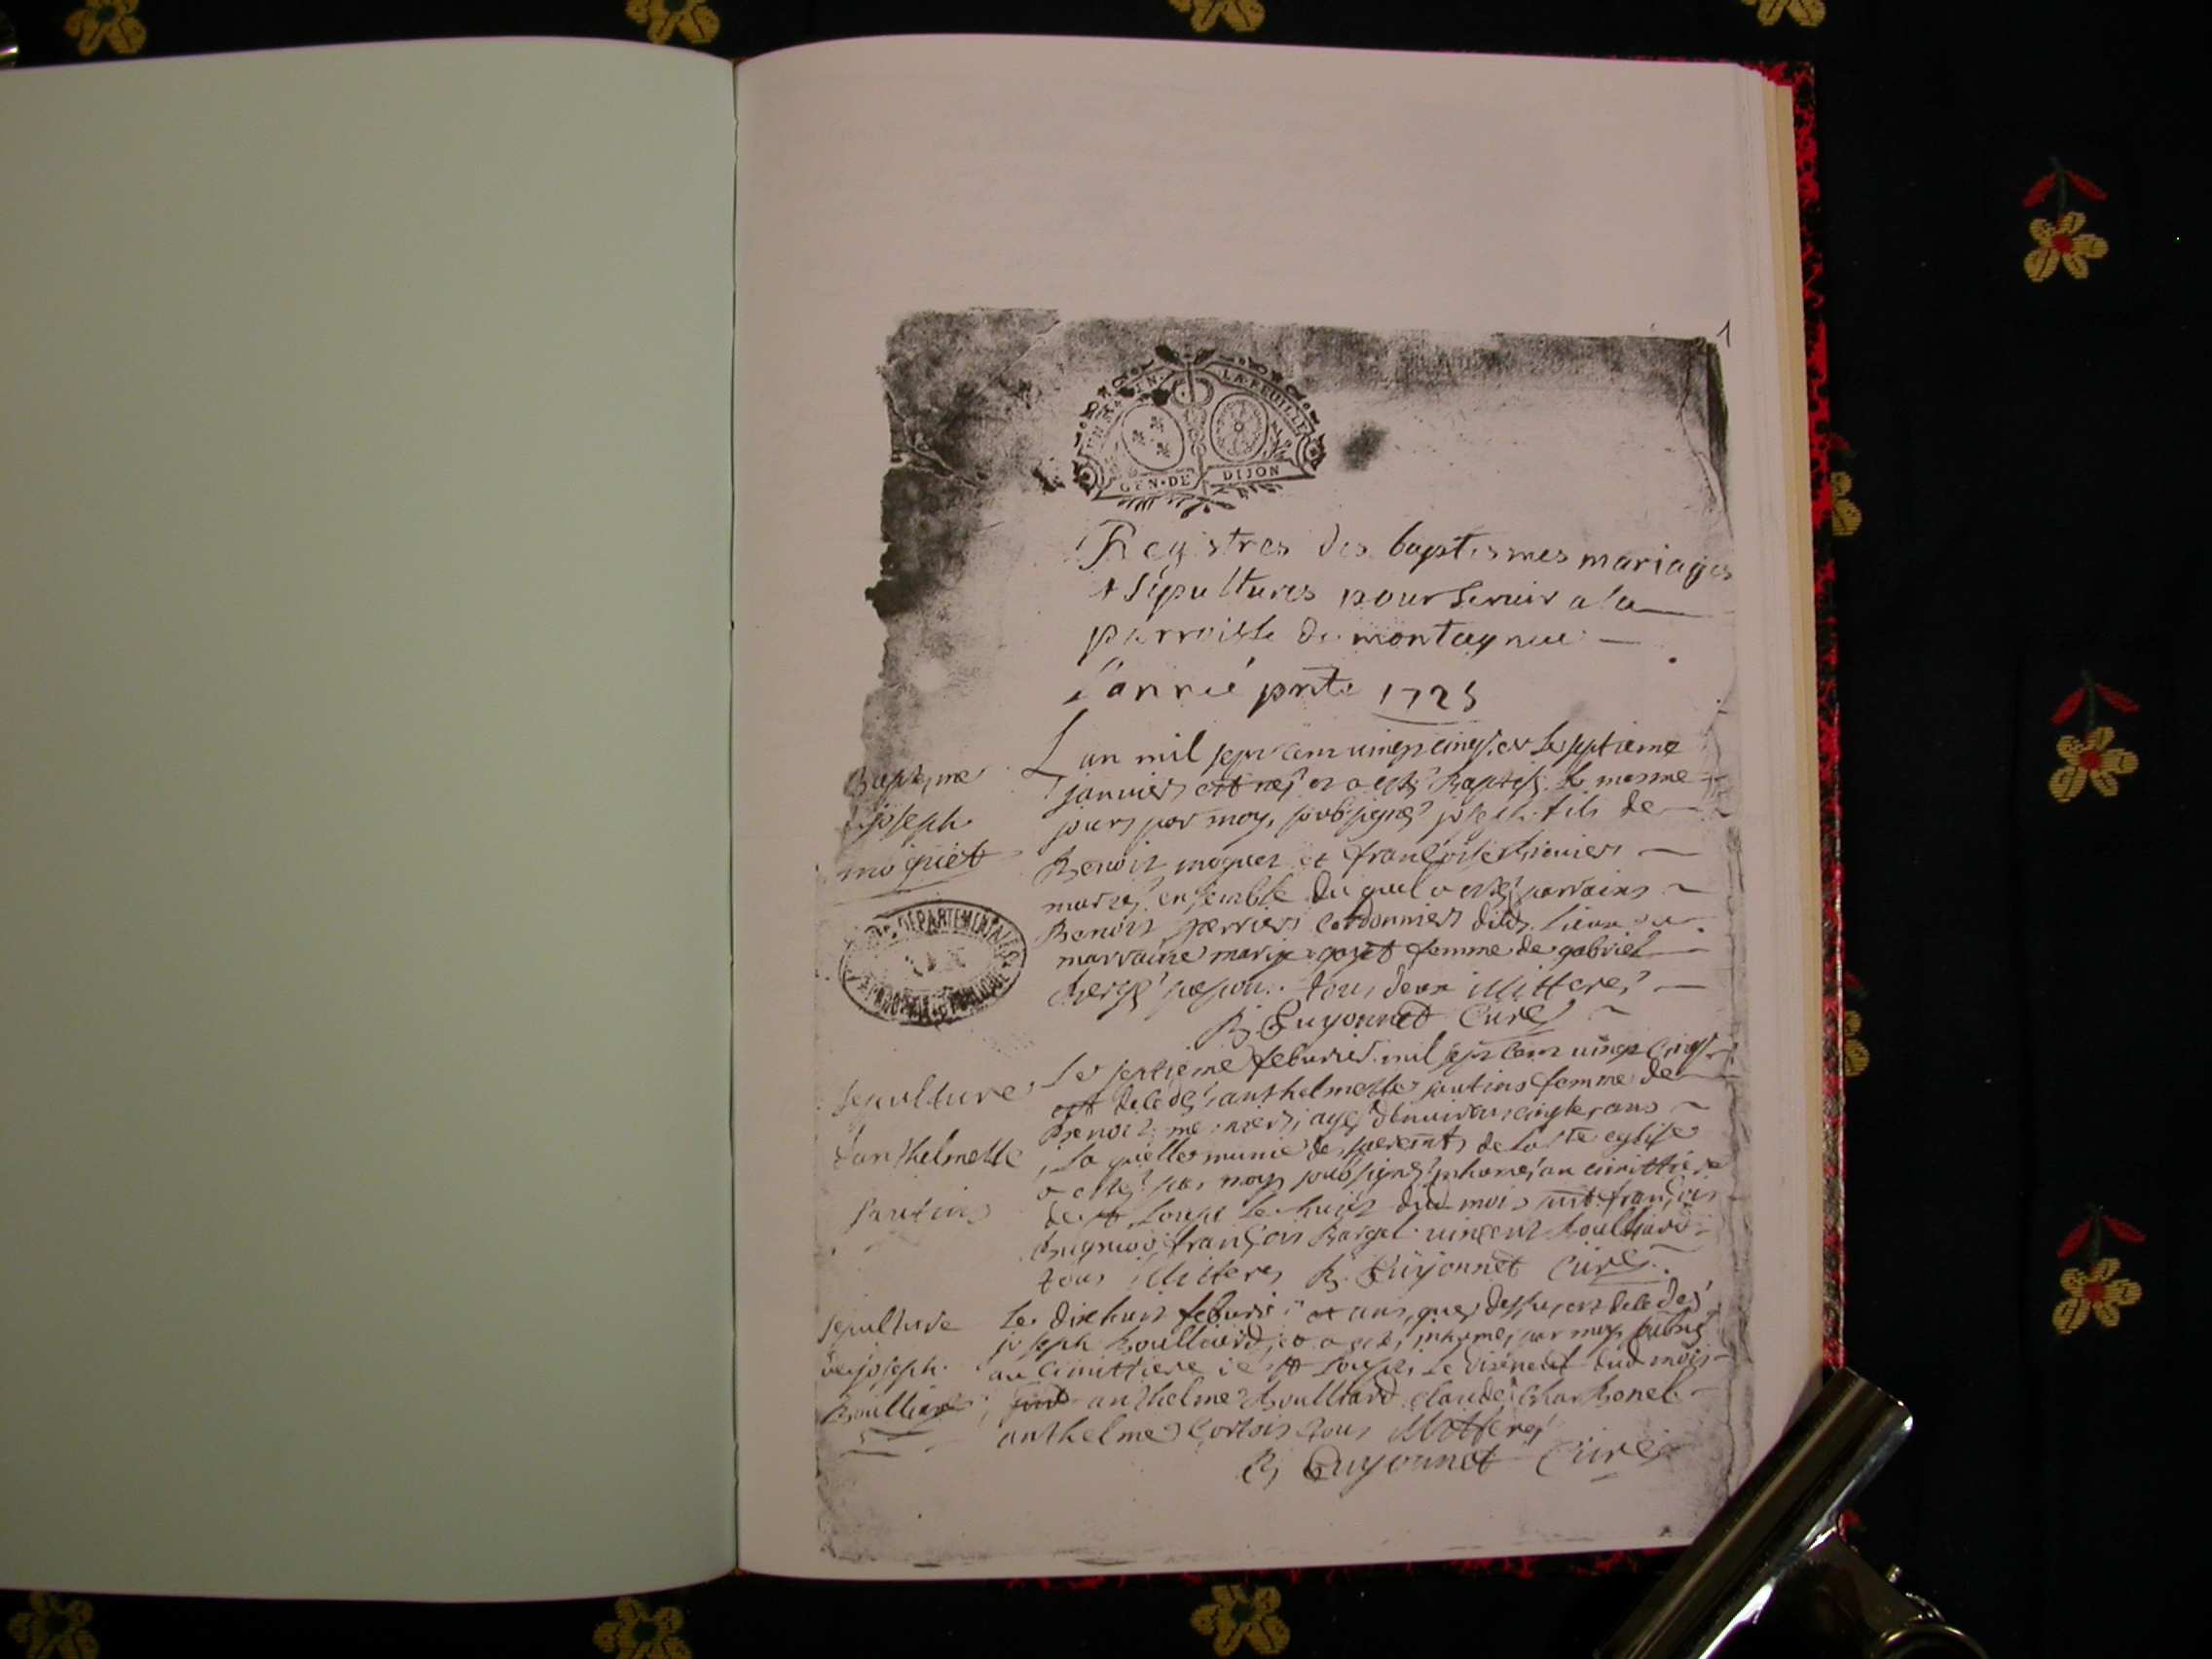 1
LA FEUILLE
GEN · DE DIJON
Registres des baptesmes mariages
& sépultures pour servir a la
parroisse de montagnieu
l'anneé prnte 1725
Baptesme
joseph
moquet
L an mil sept cent vingt cinq et le septieme
janvier est né et a esté Baptisé le mesme
jours par moy soubsigné joseph fils de
Benoit moquet et françoise
mariés ensemble du quel a esté parrains
Benoit perrier cordonnier dud. lieu et
marraine marie goyet femme de gabriel
tous deux illitteres
B Guyonnet Curé
DEPARTEMENTALES
Sepulture
d'anthelmette
pautins
Le septieme febvrier mil sept cent vingt cinq
est decedé anthelmette pautins femme de
Benoit agé d'environ ans
la quelle munie des sacremts de la ste eglise
a esté par moy soubsigné inhumé au cimittiere
de st Loupe le huict dud mois françois
françois vincent Boulliard
tous illitteres B. Guyonnet Curé
sepulture
de joseph
Boulliard
Le dixhuit febvrier et ans que dessus est decedé
joseph Boulliard et a esté inhumé par moy
au cimittiere de st Loupe le dixneuf dud mois
anthelme Boulliard claude Charbonel
anthelme Cortois tous illitteres
B Guyonnet Curé